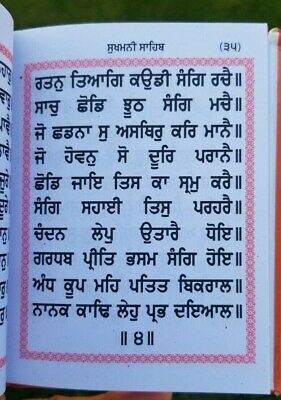 ਸੁਖਮਨੀ ਸਾਹਿਬ (੩੫)
ਰਤਨੁ ਤਿਆਗਿ ਕਉਡੀ ਸੰਗਿ ਰਚੈ॥
ਸਾਚੁ ਛੋਡਿ ਝੂਠ ਸੰਗਿ ਮਚੈ॥
ਜੋ ਛਡਨਾ ਸੁ ਅਸਥਿਰੁ ਕਰਿ ਮਾਨੈ॥
ਜੋ ਹੋਵਨੁ ਸੋ ਦੂਰਿ ਪਰਾਨੈ॥
ਛੋਡਿ ਜਾਇ ਤਿਸ ਕਾ ਸ੍ਰਮੁ ਕਰੈ॥
ਸੰਗਿ ਸਹਾਈ ਤਿਸੁ ਪਰਹਰੈ॥
ਚੰਦਨ ਲੇਪੁ ਉਤਾਰੈ ਧੋਇ॥
ਗਰਧਬ ਪ੍ਰੀਤਿ ਭਸਮ ਸੰਗਿ ਹੋਇ॥
ਅੰਧ ਕੂਪ ਮਹਿ ਪਤਿਤ ਬਿਕਰਾਲ॥
ਨਾਨਕ ਕਾਢਿ ਲੇਹੁ ਪ੍ਰਭ ਦਇਆਲ॥
॥੪॥